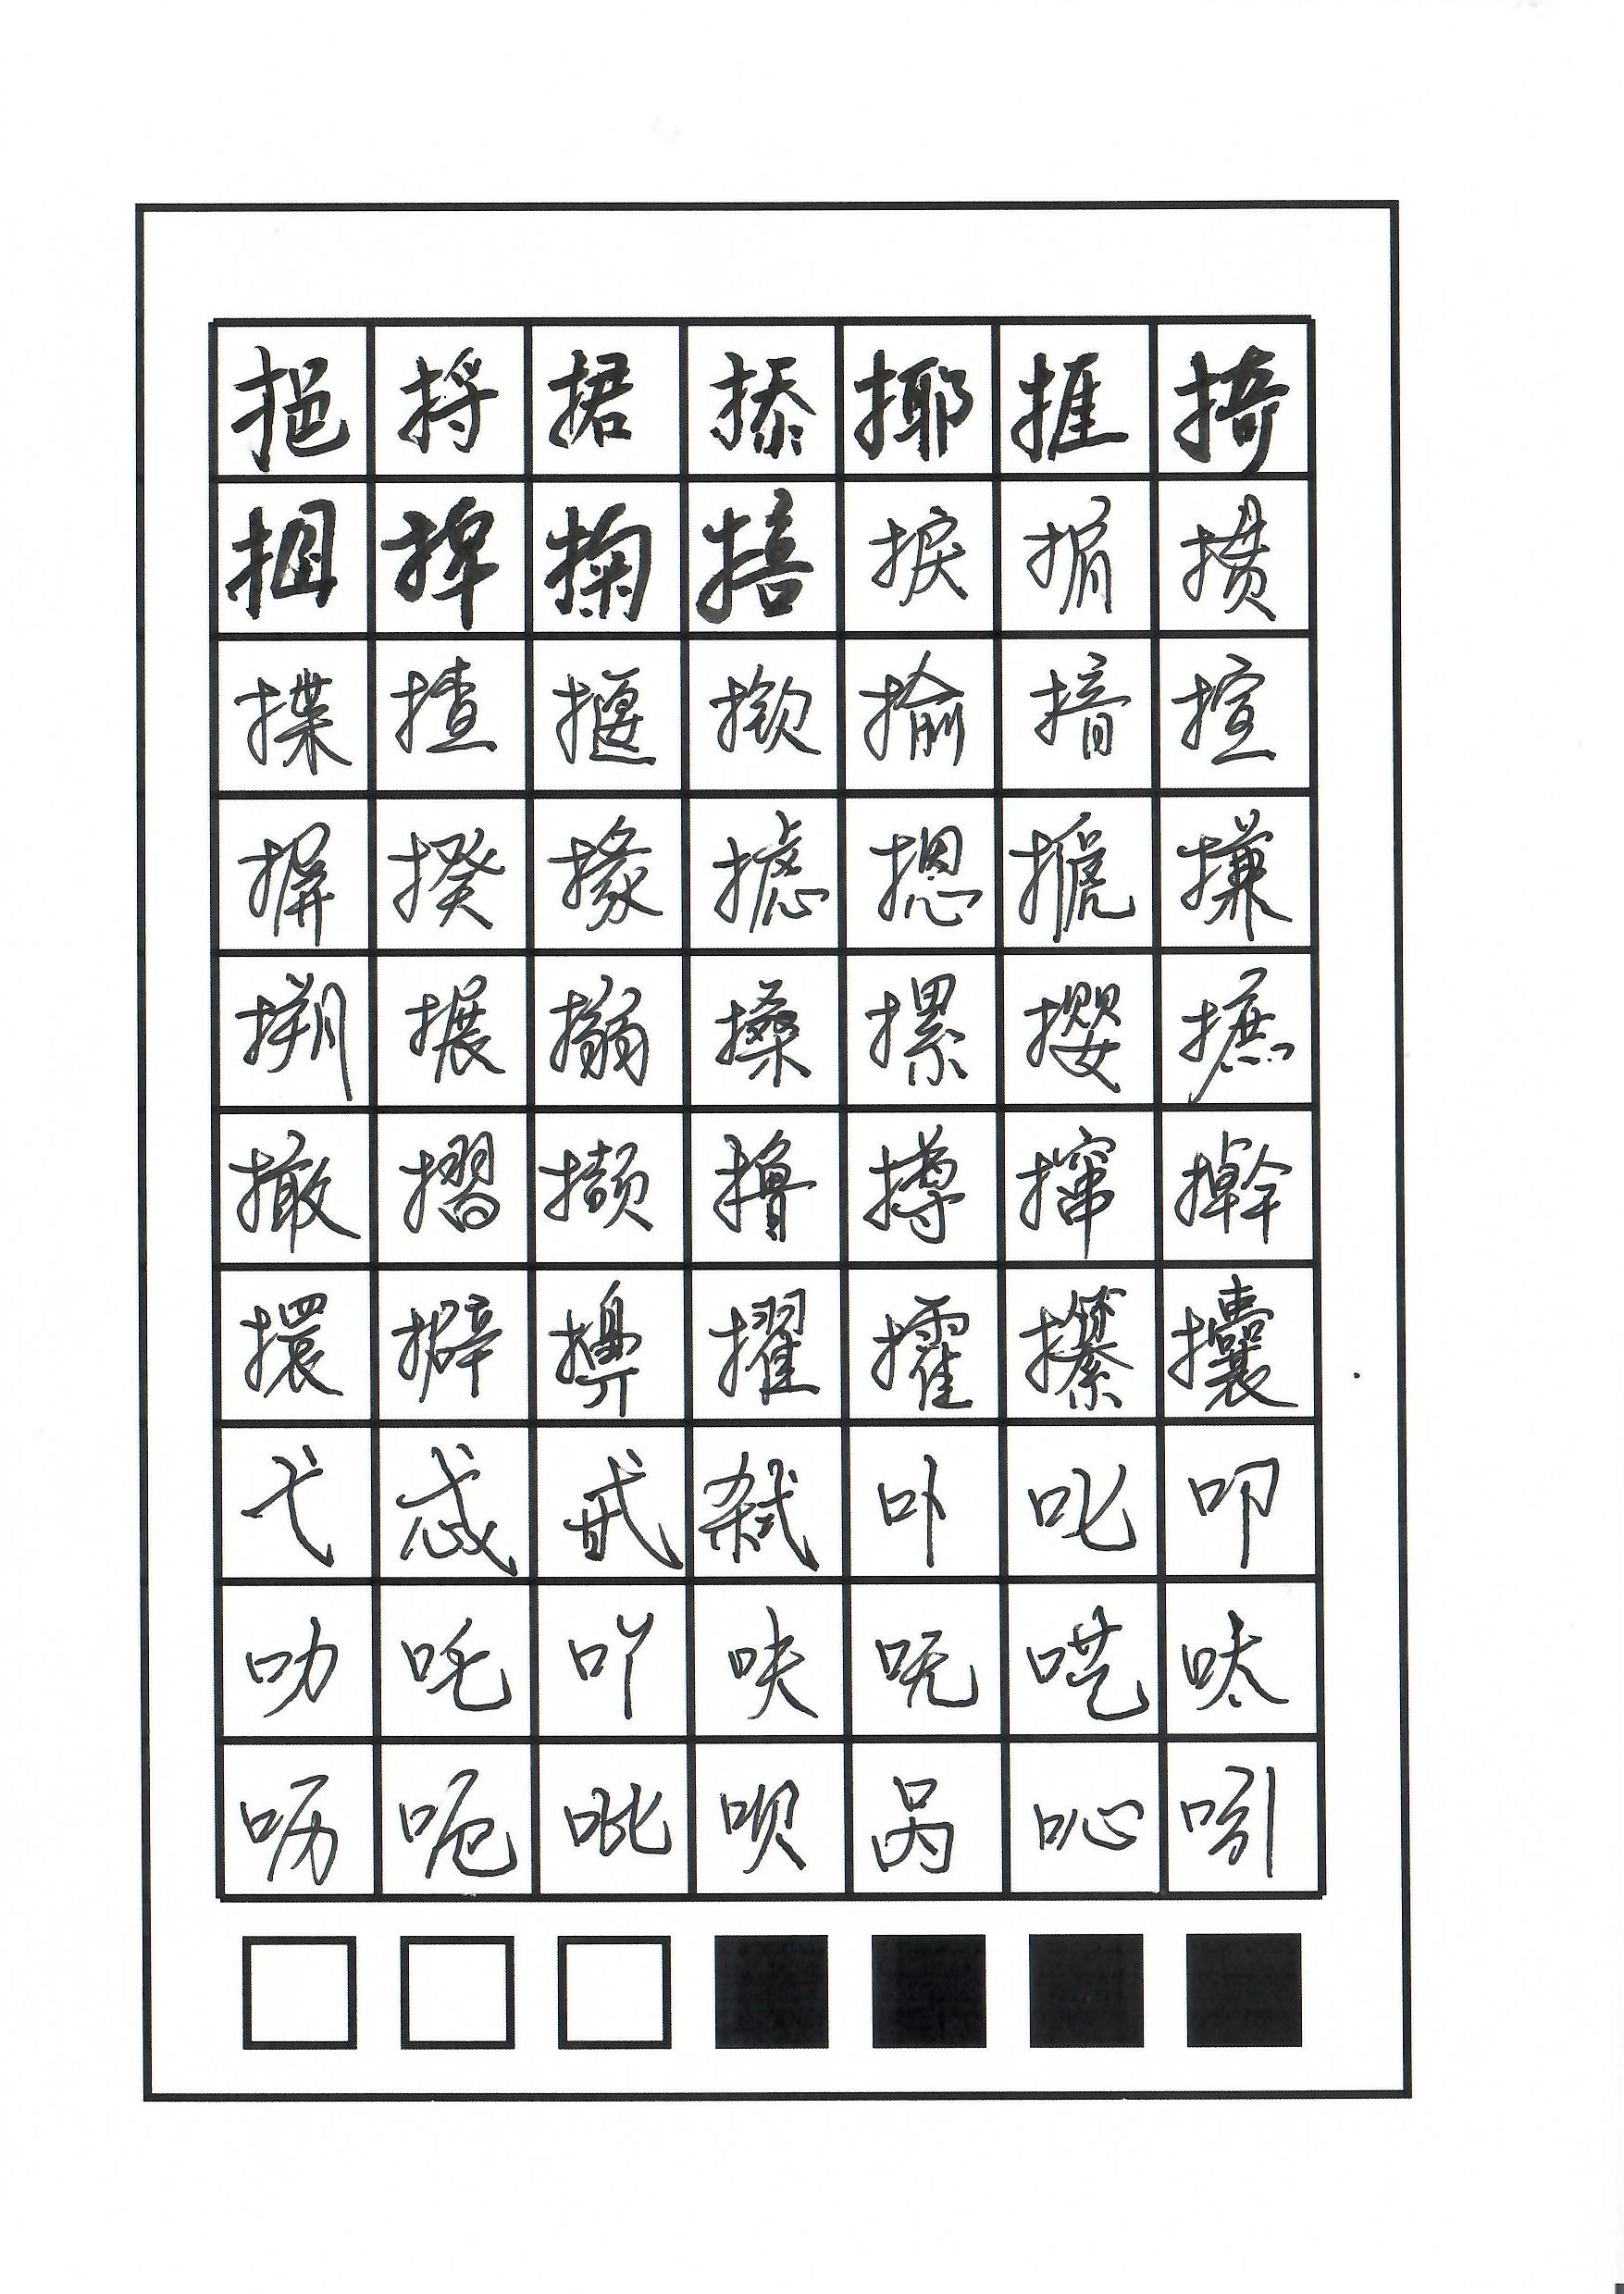 挹捋捃掭揶捱掎
掴捭掬掊捩掮掼
揲揸揠揿揄揞揎
摒揆掾摅摁搋搛
搠搌搦搡摞撄摭
撖摺撷撸撙撺擀
擐擗擤擢攉攥攮
弋忒甙弑卟叱叩
叻吒吖呋呒呓呔
呖呃吡呗呙吣吲